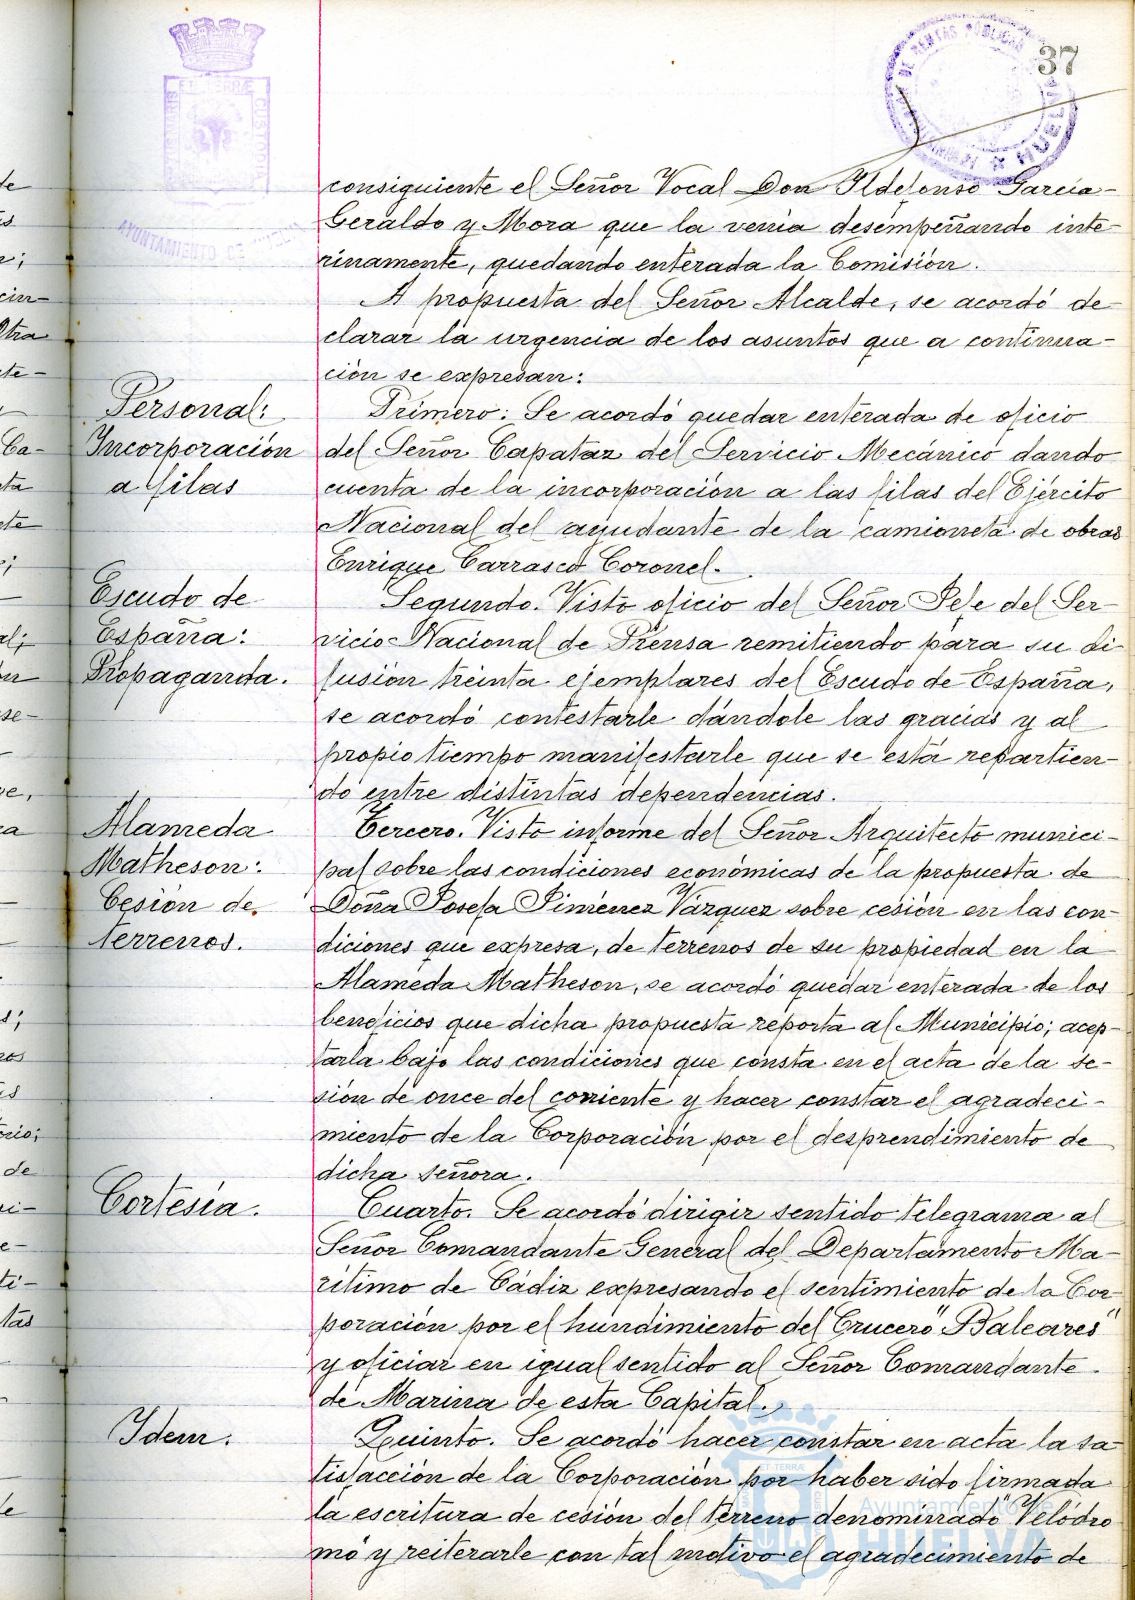 37
consiguiente el Señor Vocal Don Ildefonso García-
Geraldo y Mora que la venía desempeñando inte-
rinamente, quedando enterada la Comisión.
A propuesta del Señor Alcalde, se acordó de-
clarar la urgencia de los asuntos que a continua-
ción se expresan:
Personal:
Incorporación
a filas
Primero: Se acordó quedar enterada de oficio
del Señor Capataz del Servicio Mecánico dando
cuenta de la incorporación a las filas del Ejército
Nacional del ayudante de la camioneta de obras
Enrique Carrasco Coronel.
Escudo de
España:
Propaganda.
Segundo. Visto oficio del Señor Jefe del Ser-
vicio Nacional de Prensa remitiendo para su di-
fusión treinta ejemplares del Escudo de España,
se acordó contestarle dándole las gracias y al
propio tiempo manifestarle que se está repartien-
do entre distintas dependencias.
Alameda
Matheson:
Cesión de
terrenos.
Tercero. Visto informe del Señor Arquitecto munici-
pal sobre las condiciones económicas de la propuesta de
Doña Josefa Jiménez Vázquez sobre cesión en las con-
diciones que expresa, de terrenos de su propiedad en la
Alameda Matheson, se acordó quedar enterada de los
beneficios que dicha propuesta reporta al Municipio; acep-
tarla bajo las condiciones que consta en el acta de la se-
sión de once del corriente y hacer constar el agradeci-
miento de la Corporación por el desprendimiento de
dicha señora.
Cortesía.
Cuarto. Se acordó dirigir sentido telegrama al
Señor Comandante General del Departamento Ma-
rítimo de Cádiz expresando el sentimiento de la Cor-
poración por el hundimiento del Crucero "Baleares"
y oficiar en igual sentido al Señor Comandante
de Marina de esta Capital.
Idem.
Quinto. Se acordó hacer constar en acta la sa-
tisfacción de la Corporación por haber sido firmada
la escritura de cesión del terreno denominado "Velódro-
mo" y reiterarle con tal motivo el agradecimiento de
AYUNTAMIENTO DE
Ayuntamiento de
HUELVA